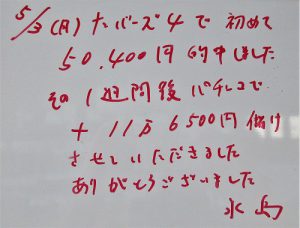 5/3(月)ナンバーズ4で初めて
50.400円的中しました
その1週間後パチンコで
+11万6500円儲け
させていただきました
ありがとうございました
水島